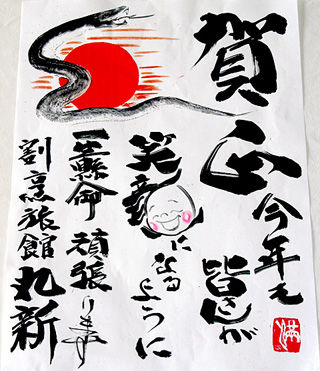 賀正
今年も
皆さんが
笑顔に
なるように
一生懸命
頑張ります
割烹旅館 丸新